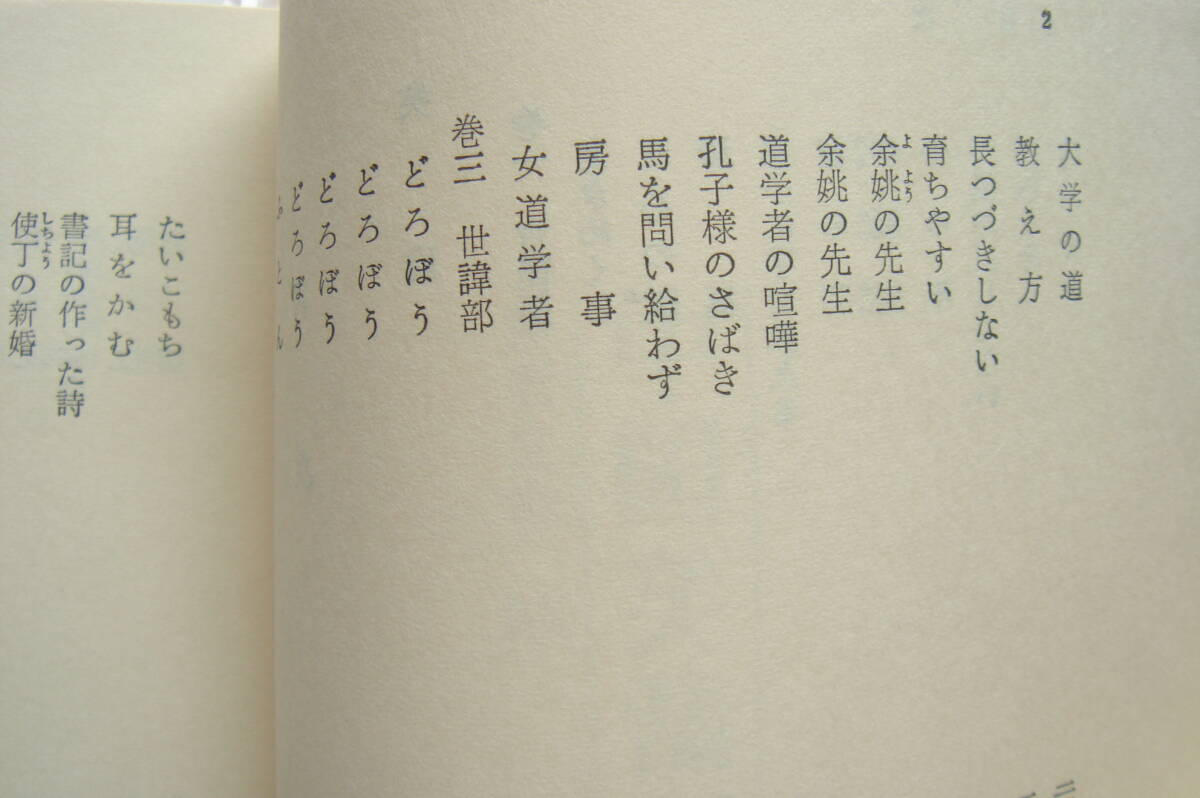 2
大学の道
教え方
長つづきしない
育ちやすい
余姚の先生
よよう
余姚の先生
道学者の喧嘩
孔子様のさばき
馬を問い給わず
房事
女道学者
巻三 世諱部
どろぼう
どろぼう
どろぼう
どろぼう
たいこもち
耳をかむ
書記の作った詩
使丁の新婚
しちよう